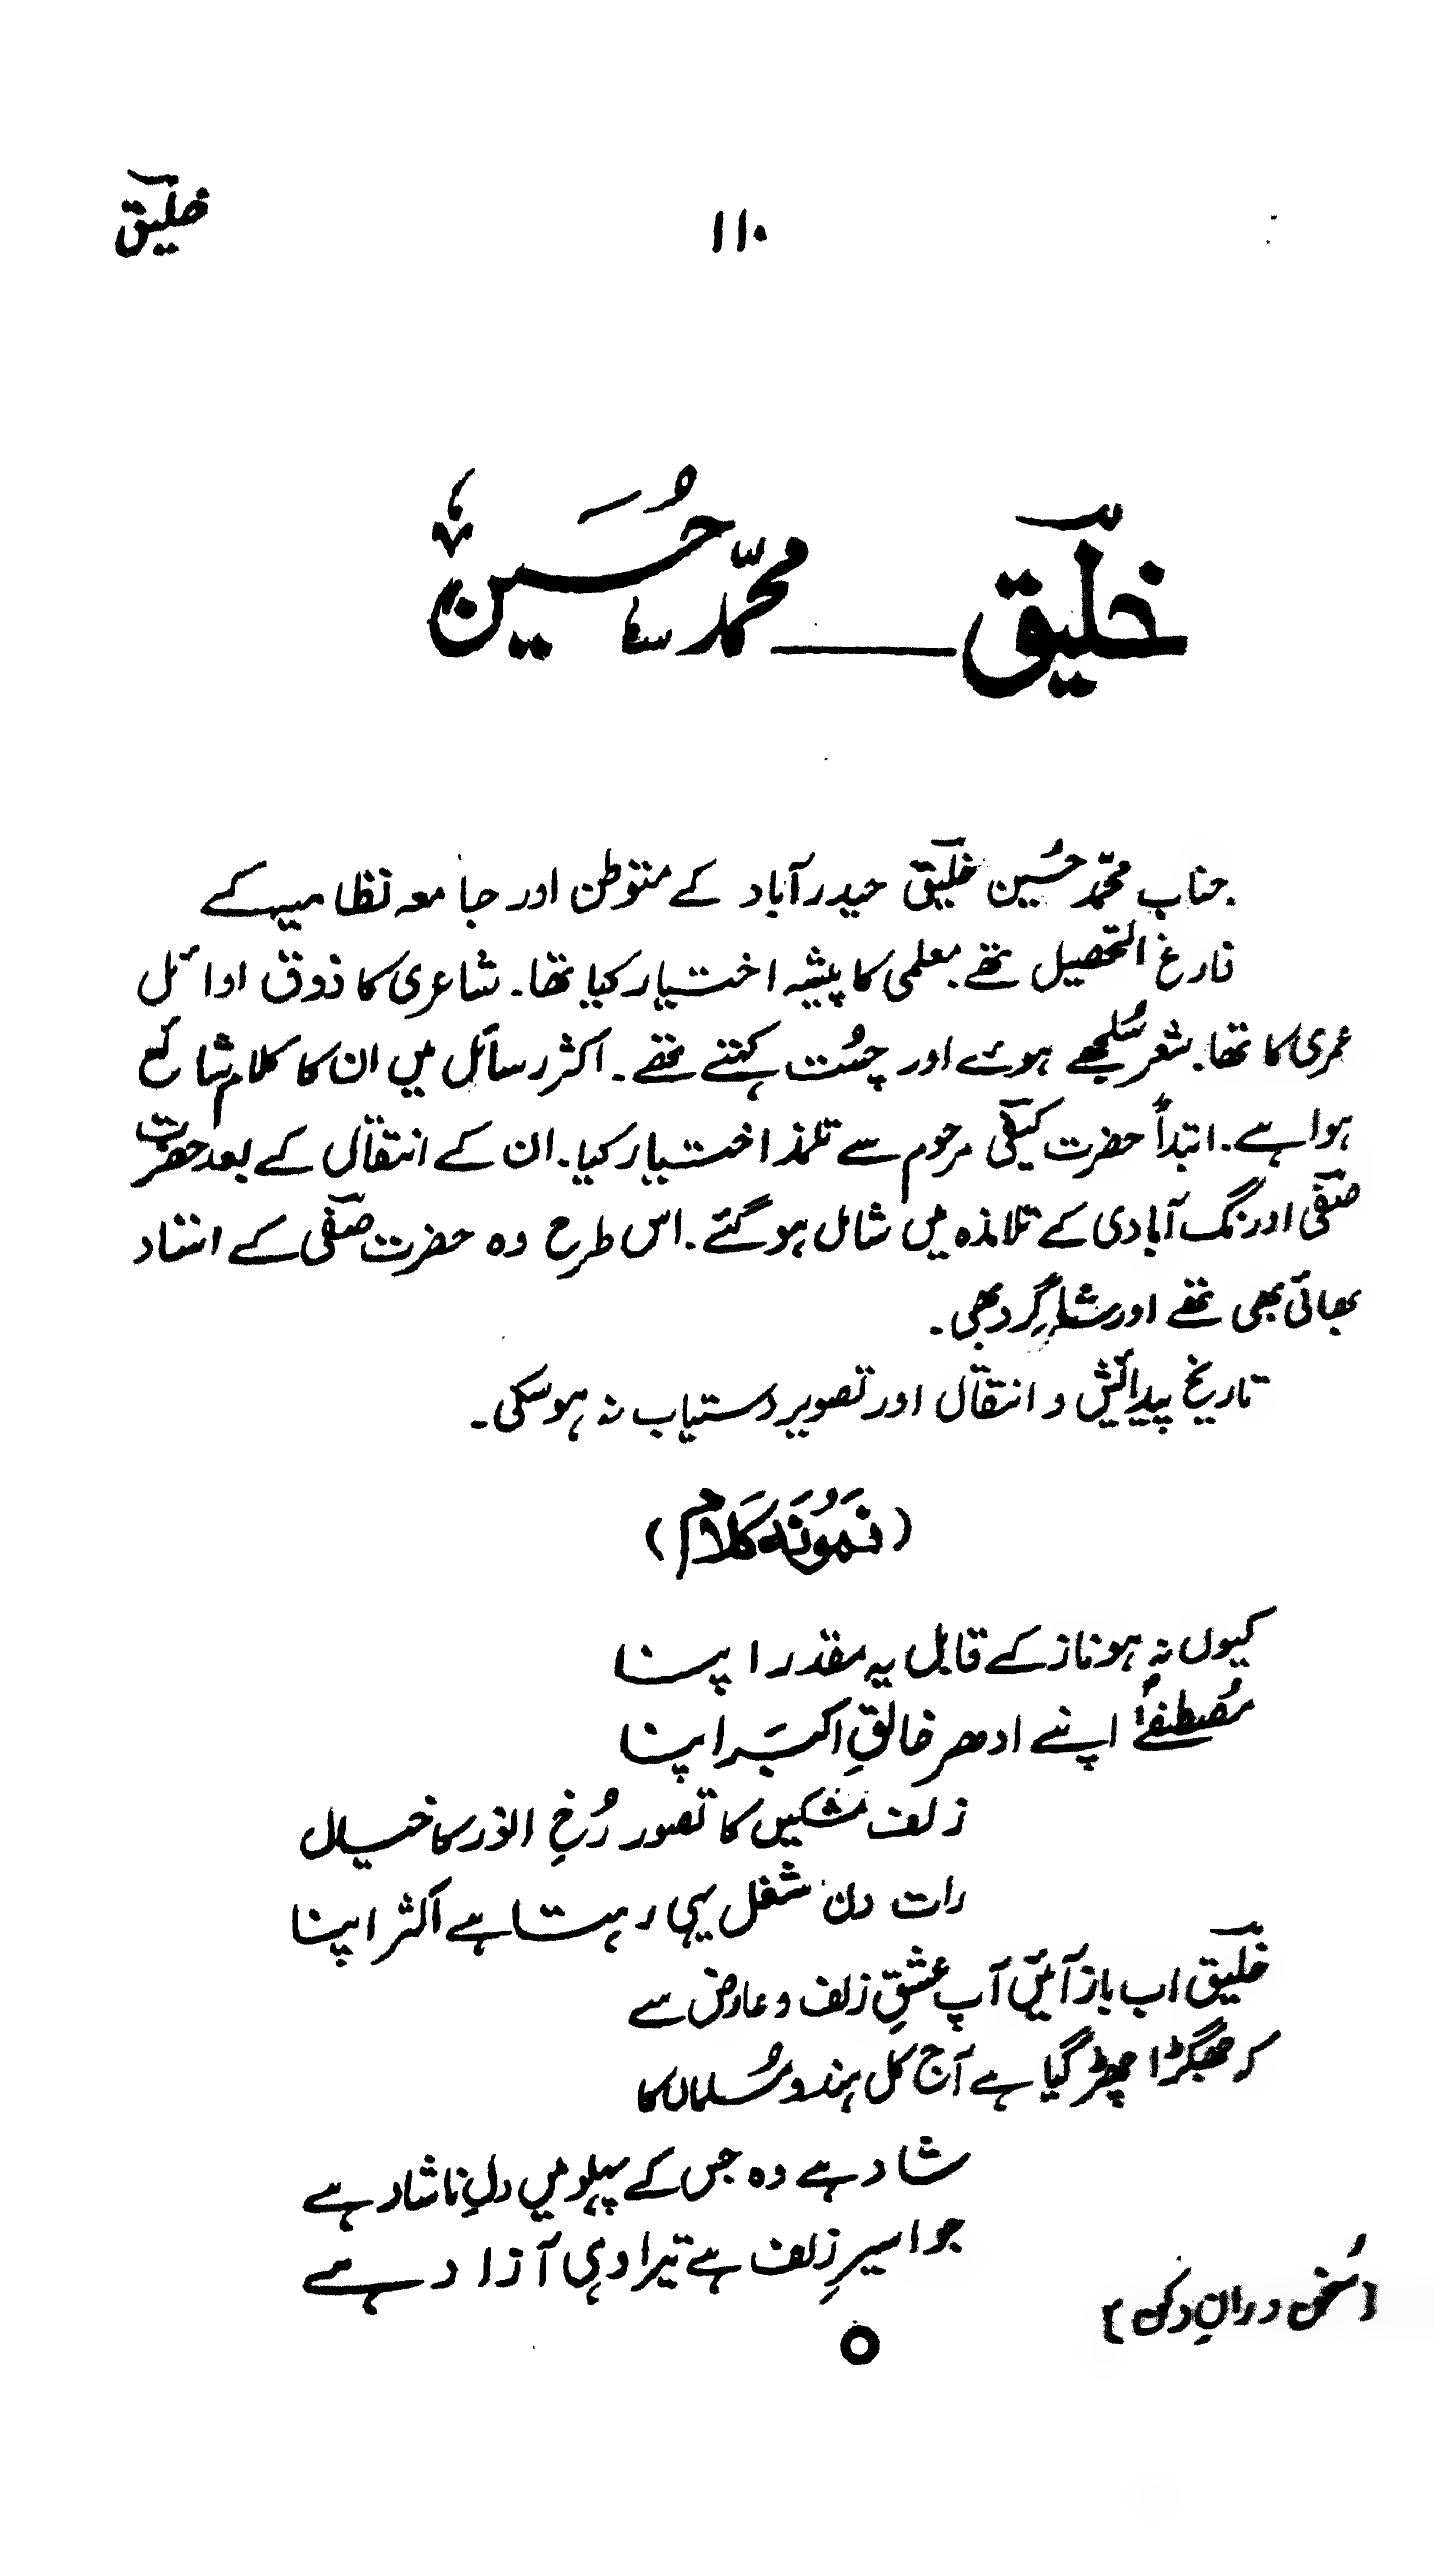 خلیق
۱۱۰
خلیق ــــ محمد حُسین
جناب محمد حُسین خلیق حیدرآباد کے متوطن اور جامعہ نظامیہ کے
فارغ التحصیل تھے۔ معلمی کا پیشہ اختیار کیا تھا۔ شاعری کا ذوق اوائل
عمری کا تھا۔ شعر سُلجھے ہوئے اور چُست کہتے تھے۔ اکثر رسائل میں ان کا کلام شائع
ہوا ہے۔ ابتداً حضرت کیفی مرحوم سے تلمذ اختیار کیا۔ ان کے انتقال کے بعد حضرت
صفی اورنگ آبادی کے تلامذہ میں شامل ہو گئے۔ اس طرح وہ حضرت صفی کے استاد
بھائی بھی تھے اور شاگرد بھی۔
تاریخ پیدائش و انتقال اور تصویر دستیاب نہ ہو سکی۔
(نَمُونَہ کَلام)
کیوں نہ ہو ناز کے قابل یہ مقدر اپنا
مُصطفےٰؐ اپنے ادھر خالقِ اکبَر اپنا
زلف مشکیں کا تصور رُخِ انور کا خیال
رات دن شغل یہی رہتا ہے اکثر اپنا
خلیق اب باز آئیں آپ عشقِ زلف و عارض سے
کہ جھگڑا چھڑ گیا ہے آج کل ہندو مُسلماں کا
شاد ہے وہ جس کے پہلو میں دلِ ناشاد ہے
جو اسیرِ زلف ہے تیرا وہی آزاد ہے
[سُخن ورانِ دکن]